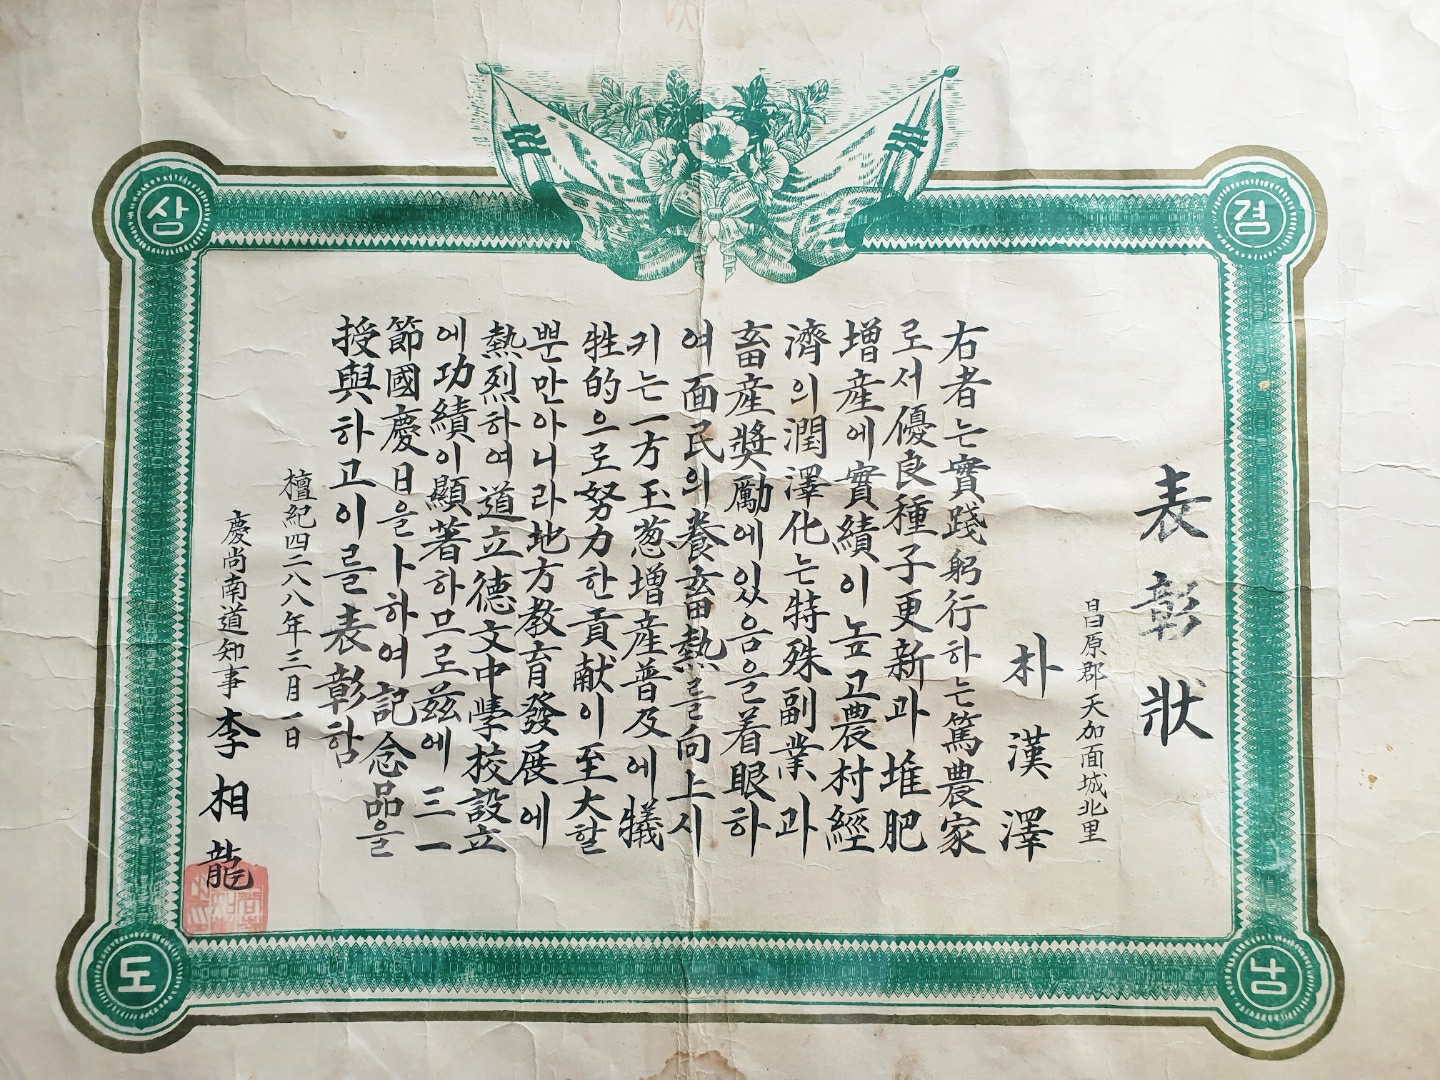 表彰狀
昌原郡天加面城北里
朴漢澤
右者는實踐躬行하는篤農家
로서優良種子更新과堆肥
增産에實績이높고農村經
濟의潤澤化는特殊副業과
畜産奬勵에있음을着眼하
여面民의養畜熱를向上시
키는一方玉葱增産普及에犧
牲的으로努力한貢献이至大할
뿐만아니라地方敎育發展에
熱烈하여道立德文中學校設立
에功績이顯著하므로玆에三一
節國慶日을卜하여記念品을
授與하고이를表彰함
檀紀四二八八年三月一日
慶尚南道知事 李相龍
경
남
도